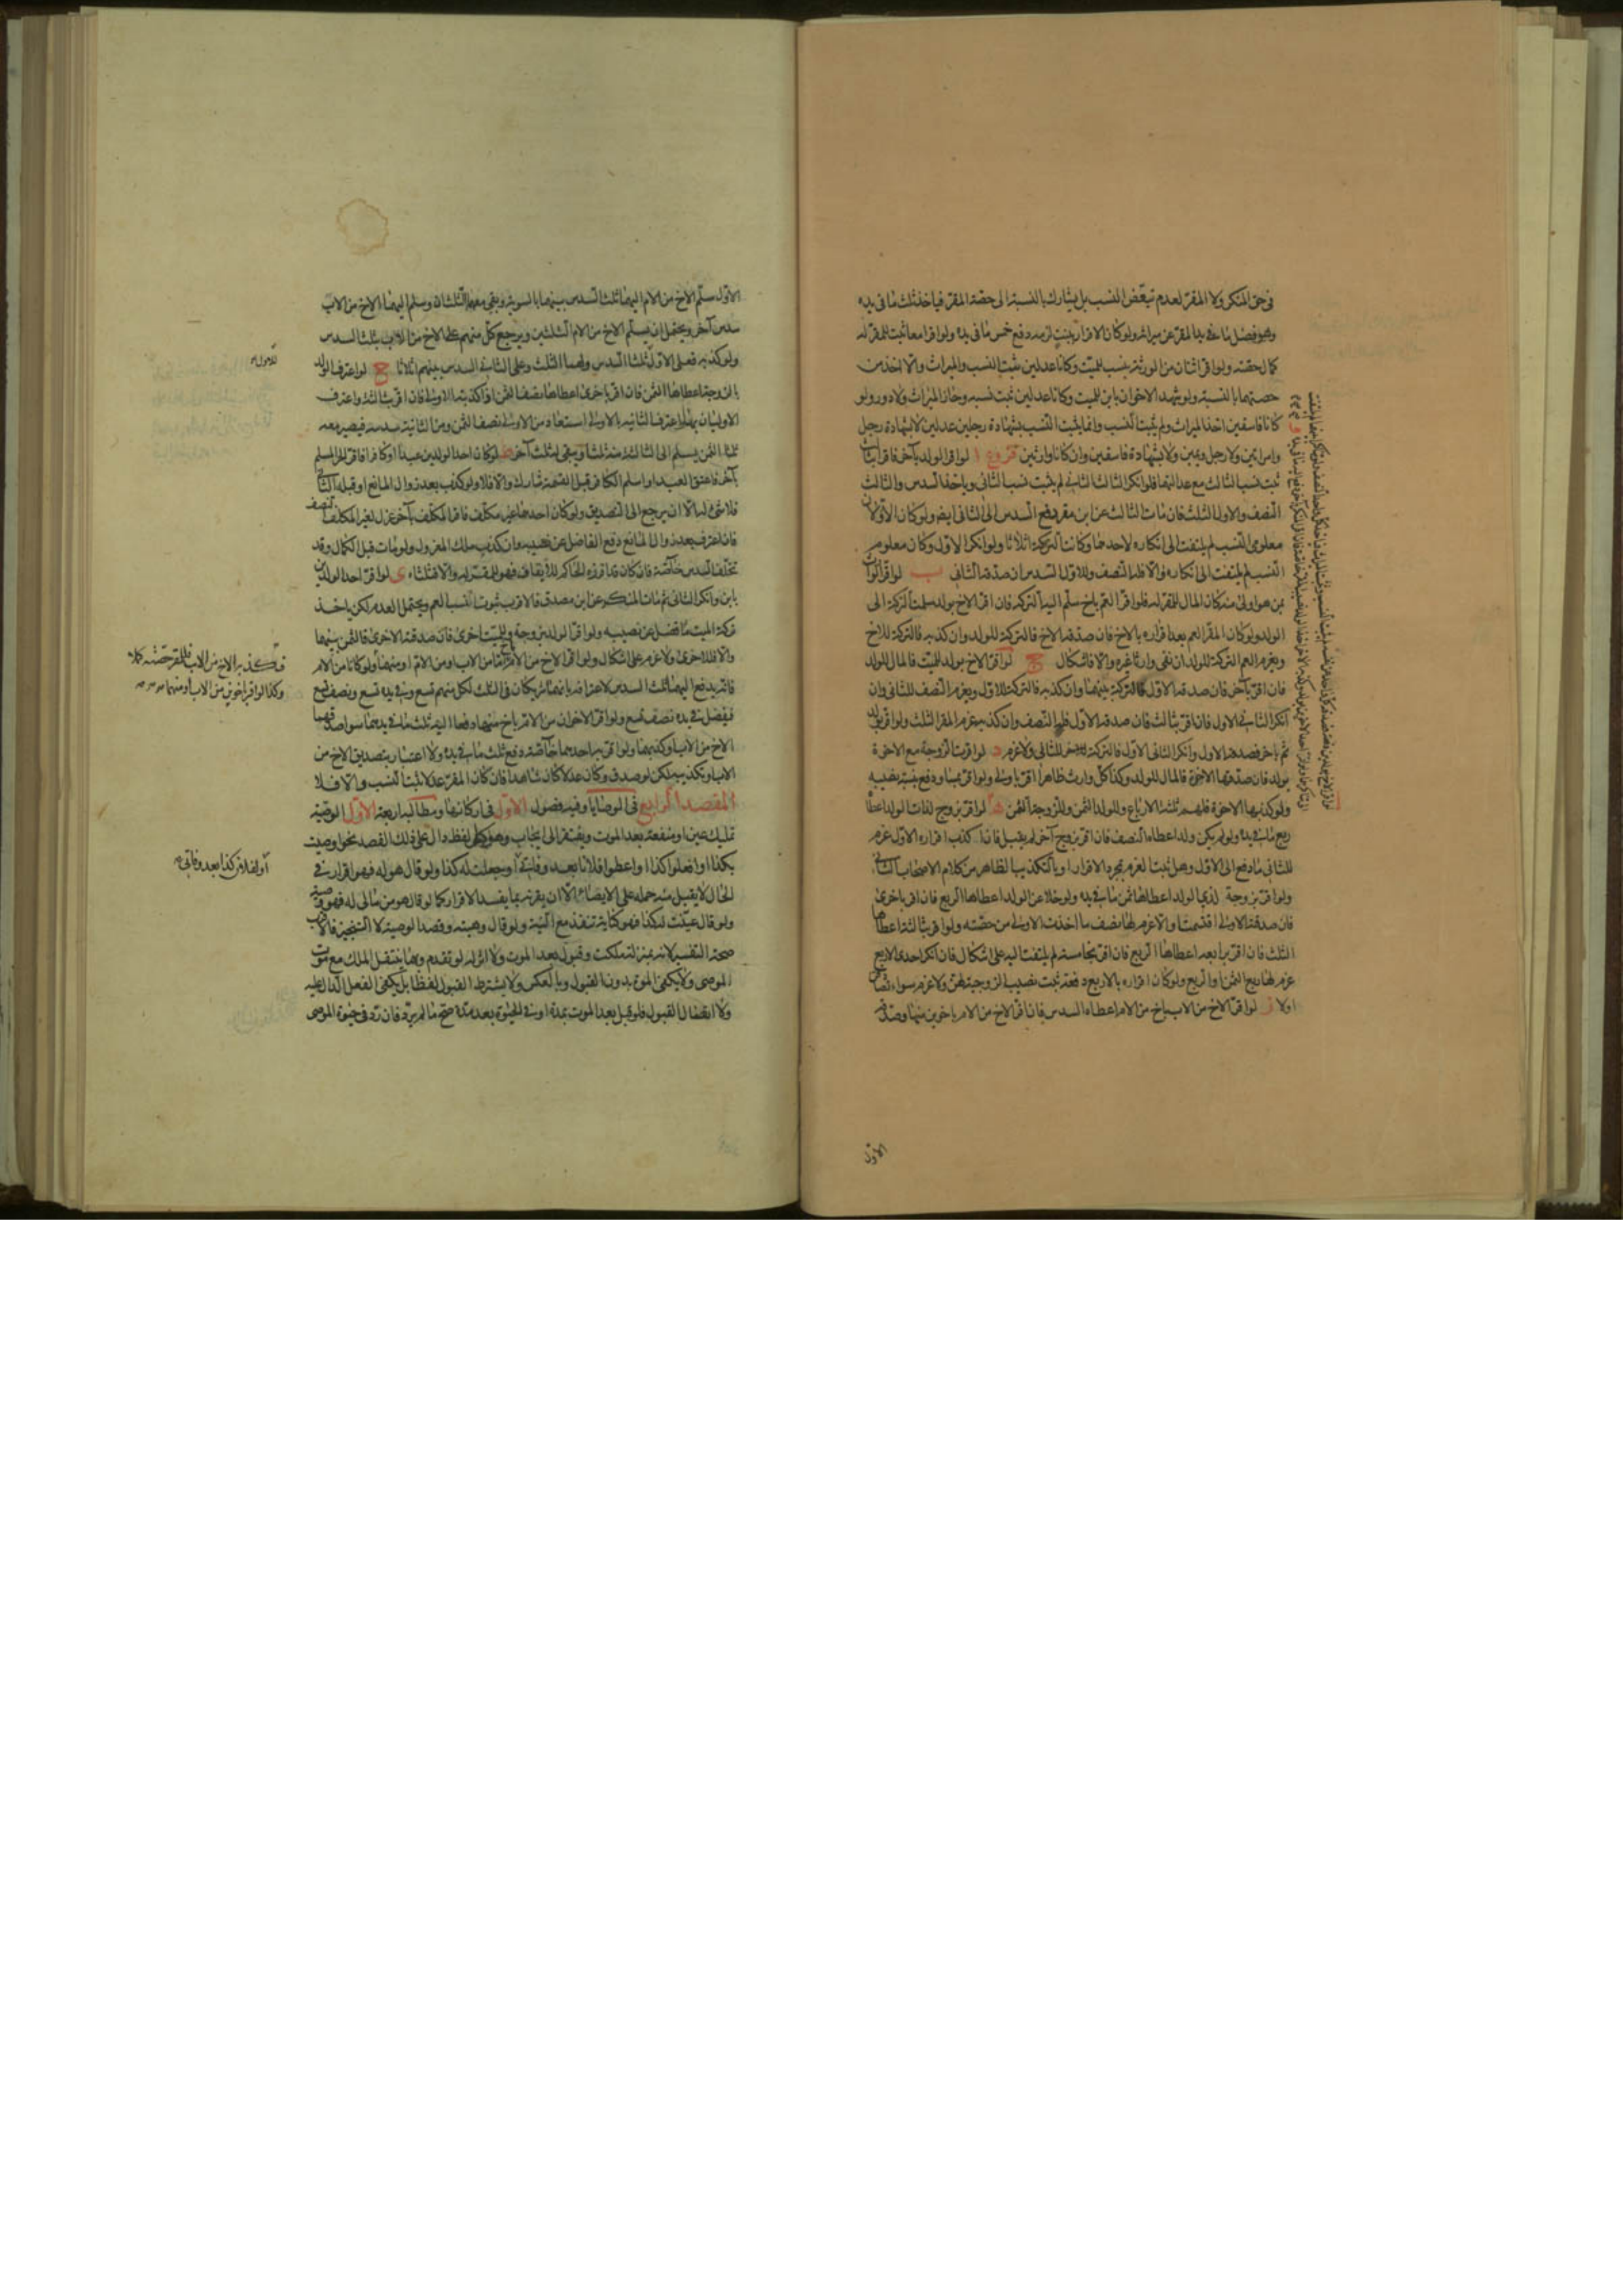 في حق المنكر ولا المقر لعدم تبعّض النسب بل يشارك بالنسبة الى حصة المقر فياخذ ثلث ما في يده
وهو فضل ما في يد المقر عن ميراثه ولو كان الاقرار ببنت لزمه دفع خمس ما في يده ولو اقرا معا ثبت للمقر له
كمال حقته ولو اقر اثنان من الورثة بنسب للميت وكانا عدلين ثبت النسب والميراث والا اخذ من
حصتهما بالنسبة ولو شهد الاخوان بابن للميت وكانا عدلين ثبت نسبه وحاز الميراث ولا دور ولو
كانا فاسقين اخذ الميراث ولم يثبت النسب وانما يثبت النسب بشهادة رجلين عدلين لا بشهادة رجل
وامراتين ولا رجل ويمين ولا بشهادة فاسقين وان كانا وارثين فروع ا لو اقر الولد بآخر فاقرا بثالث
ثبت نسب الثالث مع عدالتهما فلو انكر الثالث الثاني لم يثبت نسب الثاني وياخذ السدس والثالث
النصف والاول الثلث فان مات الثالث عن ابن مقر دفع السدس الى الثاني ايضا ولو كان الاولان
معلومي النسب لم يلتفت الى انكاره لاحدهما وكانت التركة اثلاثا ولو انكر الاول وكان معلوم
النسب لم يلتفت الى انكاره والا فله النصف وللاول السدس ان صدقه الثاني ب لو اقر الوارث
بمن هو اولى منه كان المال للمقر له فلو اقر العم باخ سلم اليه التركة فان اقر الاخ بولد سلمت التركة الى
الولد ولو كان المقر العم بعد اقراره بالاخ فان صدقه الاخ فالتركة للولد وان كذبه فالتركة للاخ
ويغرم العم التركة للولد ان نفى وارثا غيره والا فاشكال ج لو اقر الاخ بولد للميت فالمال للولد
فان اقر بآخر فان صدقه الاول فالتركة بينهما وان كذبه فالتركة للاول ويغرم النصف للثاني وان
انكر الثاني الاول فان اقر بثالث فان صدقه الاول فله النصف وان كذبه غرم المقر الثلث ولو اقر بولد
ثم باخر فصدقه الاول وانكر الثاني الاول فالتركة للثاني ولا غرم د لو اقرت الزوجة مع الاخوة
بولد فان صدقها الاخوة فالمال للولد وكذا كل وارث ظاهرا اقر باولى ولو اقر بمساو دفع بنسبة نصيبه
ولو كذبها الاخوة فلهم ثلثة الارباع وللولد الثمن وللزوجة الثمن ه لو اقر بزوج لذات الولد اعطاه
ربع ما في يده ولو لم يكن ولد اعطاه النصف فان اقر بزوج آخر لم يقبل فان اكذب اقراره الاول غرم
للثاني ما دفع الى الاول وهل يثبت الغرم بمجرد الاقرار او بالتكذيب الظاهر من كلام الاصحاب الثاني
ولو اقر بزوجة لذي الولد اعطاها ثمن ما في يده ولو خلا عن الولد اعطاها الربع فان اقر باخرى
فان صدقته الاولى اقتسمتا والا غرم لها نصف ما اخذت الاولى من حصته ولو اقر بثالثة اعطاها
الثلث فان اقر برابعة اعطاها الربع فان اقر بخامسة لم يلتفت اليه على اشكال فان انكر احدى الاربع
غرم لها ربع الثمن او الربع ولو كان اقراره بالاربع دفعة ثبت نصيب الزوجية لهن ولا غرم سواء تصادقن
او لا ز لو اقر الاخ من الاب باخ من الام اعطاه السدس فان اقر الاخ من الام باخوين منها وصدقه
الاول
الاول سلم الاخ من الام اليهما ثلث السدس بينهما بالسوية ويبقى معه الثلثان وسلم اليهما الاخ من الاب
سدس آخر ويحتمل ان يسلم الاخ من الام الثلثين ويرجع كل منهم على الاخ من الاب بثلث السدس
ولو كذبه فعلى الاول ثلثا السدس ولهما الثلث وعلى الثاني السدس بينهم اثلاثا ح لو اعترف الولد
بالزوجة اعطاها الثمن فان اقر باخرى اعطاها نصف الثمن اذا كذبته الاولى فان اقر بثالثة واعترف
الاوليان بها واعترفت الثانية بالاولى استعاد من الاولى نصف الثمن ومن الثانية سدسه فيصير معه
ثلثا الثمن يسلم الى الثالثة منه ثلثا ويبقى له ثلث آخر ط لو كان احد الولدين عبدا او كافرا فاقر الحر المسلم
بآخر فاعتق العبد او اسلم الكافر قبل القسمة شارك والا فلا ولو كذب بعد زوال المانع او قبله الثاني
فلا شيء له الا ان يرجع الى التصديق ولو كان احدهما غير مكلف فاقر المكلف بآخر عزل لغير المكلف النصف
فان اعترف بعد زوال المانع دفع الفاضل عن نصيبه وان كذب ملك المعزول ولو مات قبل الكمال وقد
تخلف السدس خاصة فان كان قد افرزه الحاكم للايقاف فهو للمقر له والا فثلثاه ي لو اقر احد الولدين
بابن وانكر الثاني ثم مات المنكر عن ابن مصدق فالاقرب ثبوت النسب العم ويحتمل العدم لكن ياخذ
تركة الميت ما فضل عن نصيبه ولو اقر الولد بزوجة وللميت اخرى فان صدقته الاخرى فالثمن بينهما
والا فللاخرى ولا غرم على اشكال ولو اقر الاخ من الام باخ اما من الاب او من الام او منهما ولو كانا من الام
فانه يدفع اليهما ثلث السدس لاعترافه بانهما شريكان في الثلث لكل منهم تسع وفي يده تسع ونصف تسع
فيفضل في يده نصف تسع ولو اقر الاخوان من الام باخ منهما دفعا اليه ثلث ما في يدهما سواء صدقهما
الاخ من الاب او كذبهما ولو اقر به احدهما خاصة دفع ثلث ما في يده ولا اعتبار بتصديق الاخ من
الاب او تكذيبه لكن لو صدق وكان عدلا كان شاهدا فان كان المقر عدلا ثبت النسب والا فلا
المقصد الرابع في الوصايا وفيه فصول الاول في اركانها ومطالبه اربعة الاول الوصية
تمليك عين او منفعة بعد الموت ويفتقر الى ايجاب وهو كل لفظ دال على ذلك القصد نحو اوصيت
بكذا او افعلوا كذا او اعطوا فلانا بعد وفاتي او جعلت له كذا ولو قال هو له فهو اقرار في
الحال لا يقبل منه حمله على الايصاء الا ان يقرنه بما يفسد الاقرار كما لو قال هو من مالي له فهو وصية
ولو قال عينت له كذا فهو كناية تنفذ مع النية ولو قال وهبته وقصد الوصية لا التنجيز فالاقرب
صحة التفسير لانه بمنزلة ملكت وقبول بعد الموت ولا اثر له لو تقدم وهل ينتقل الملك مع موت
الموصي ولا يكفي الموت بدون القبول وبالعكس ولا يشترط القبول لفظا بل يكفي الفعل الدال عليه
ولا اتصال القبول فلو قبل بعد الموت بمدة او في الحيوة بعد مدة صح ما لم يرد فان رد في حيوة الموصي
فكذبه الاخ من الاب فللمقر حصته كملا
وكذا لو اقر باخوين من الاب او منهما
او لفلان كذا بعد وفاتي